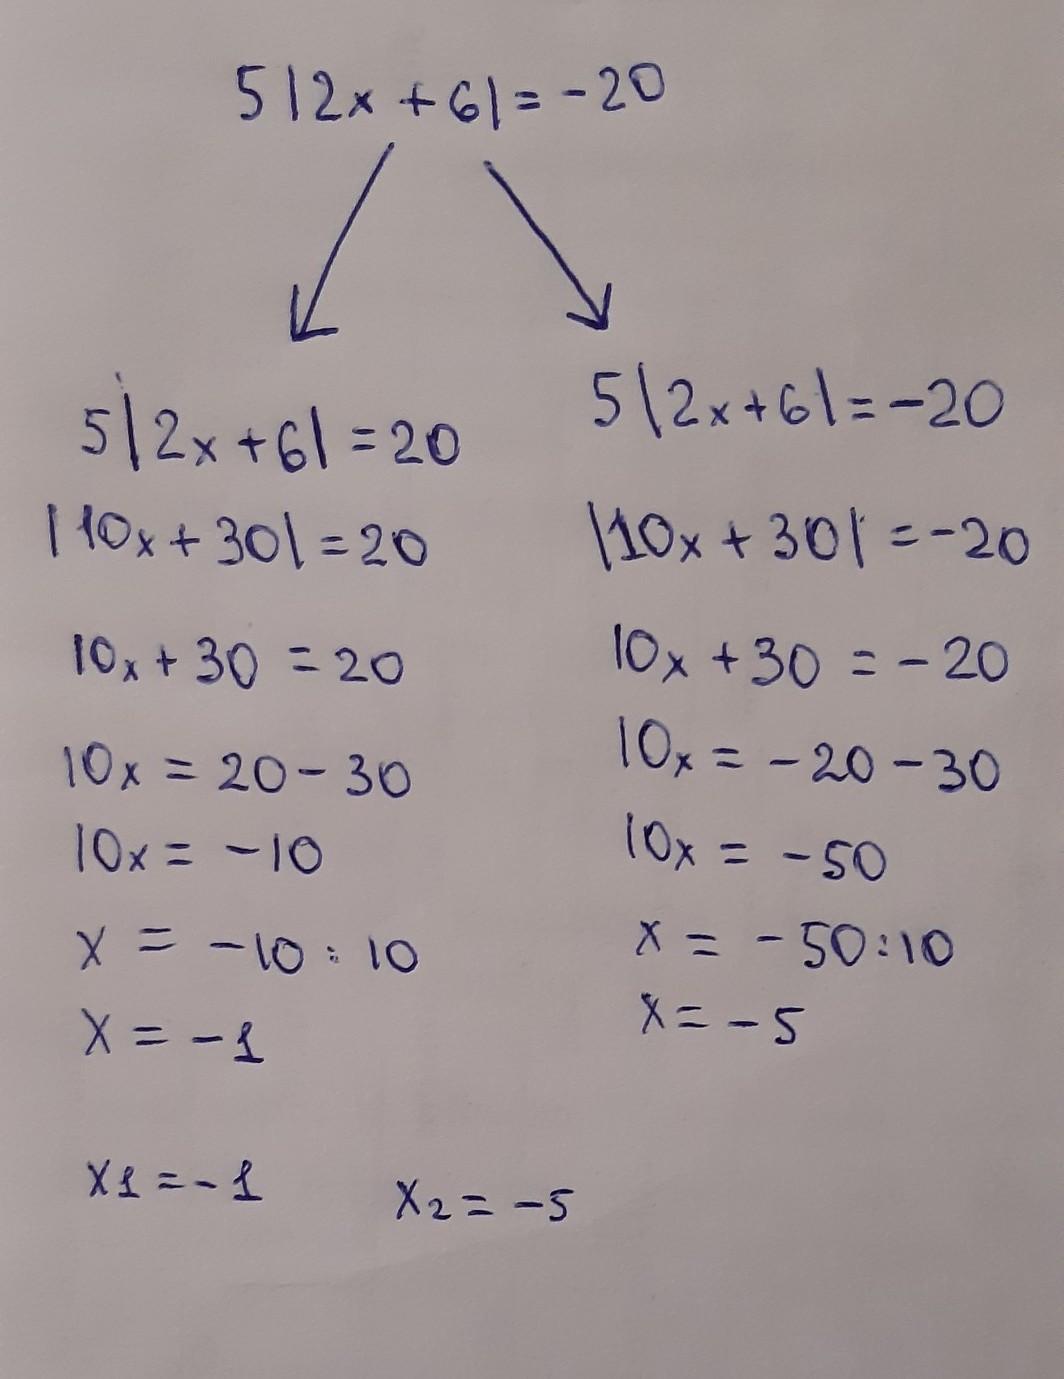 5|2x+6|=-20
5|2x+6|=20
|10x+30|=20
10x+30=20
10x=20-30
10x=-10
x=-10:10
x=-1
5|2x+6|=-20
|10x+30|=-20
10x+30=-20
10x=-20-30
10x=-50
x=-50:10
x=-5
x1=-1
x2=-5